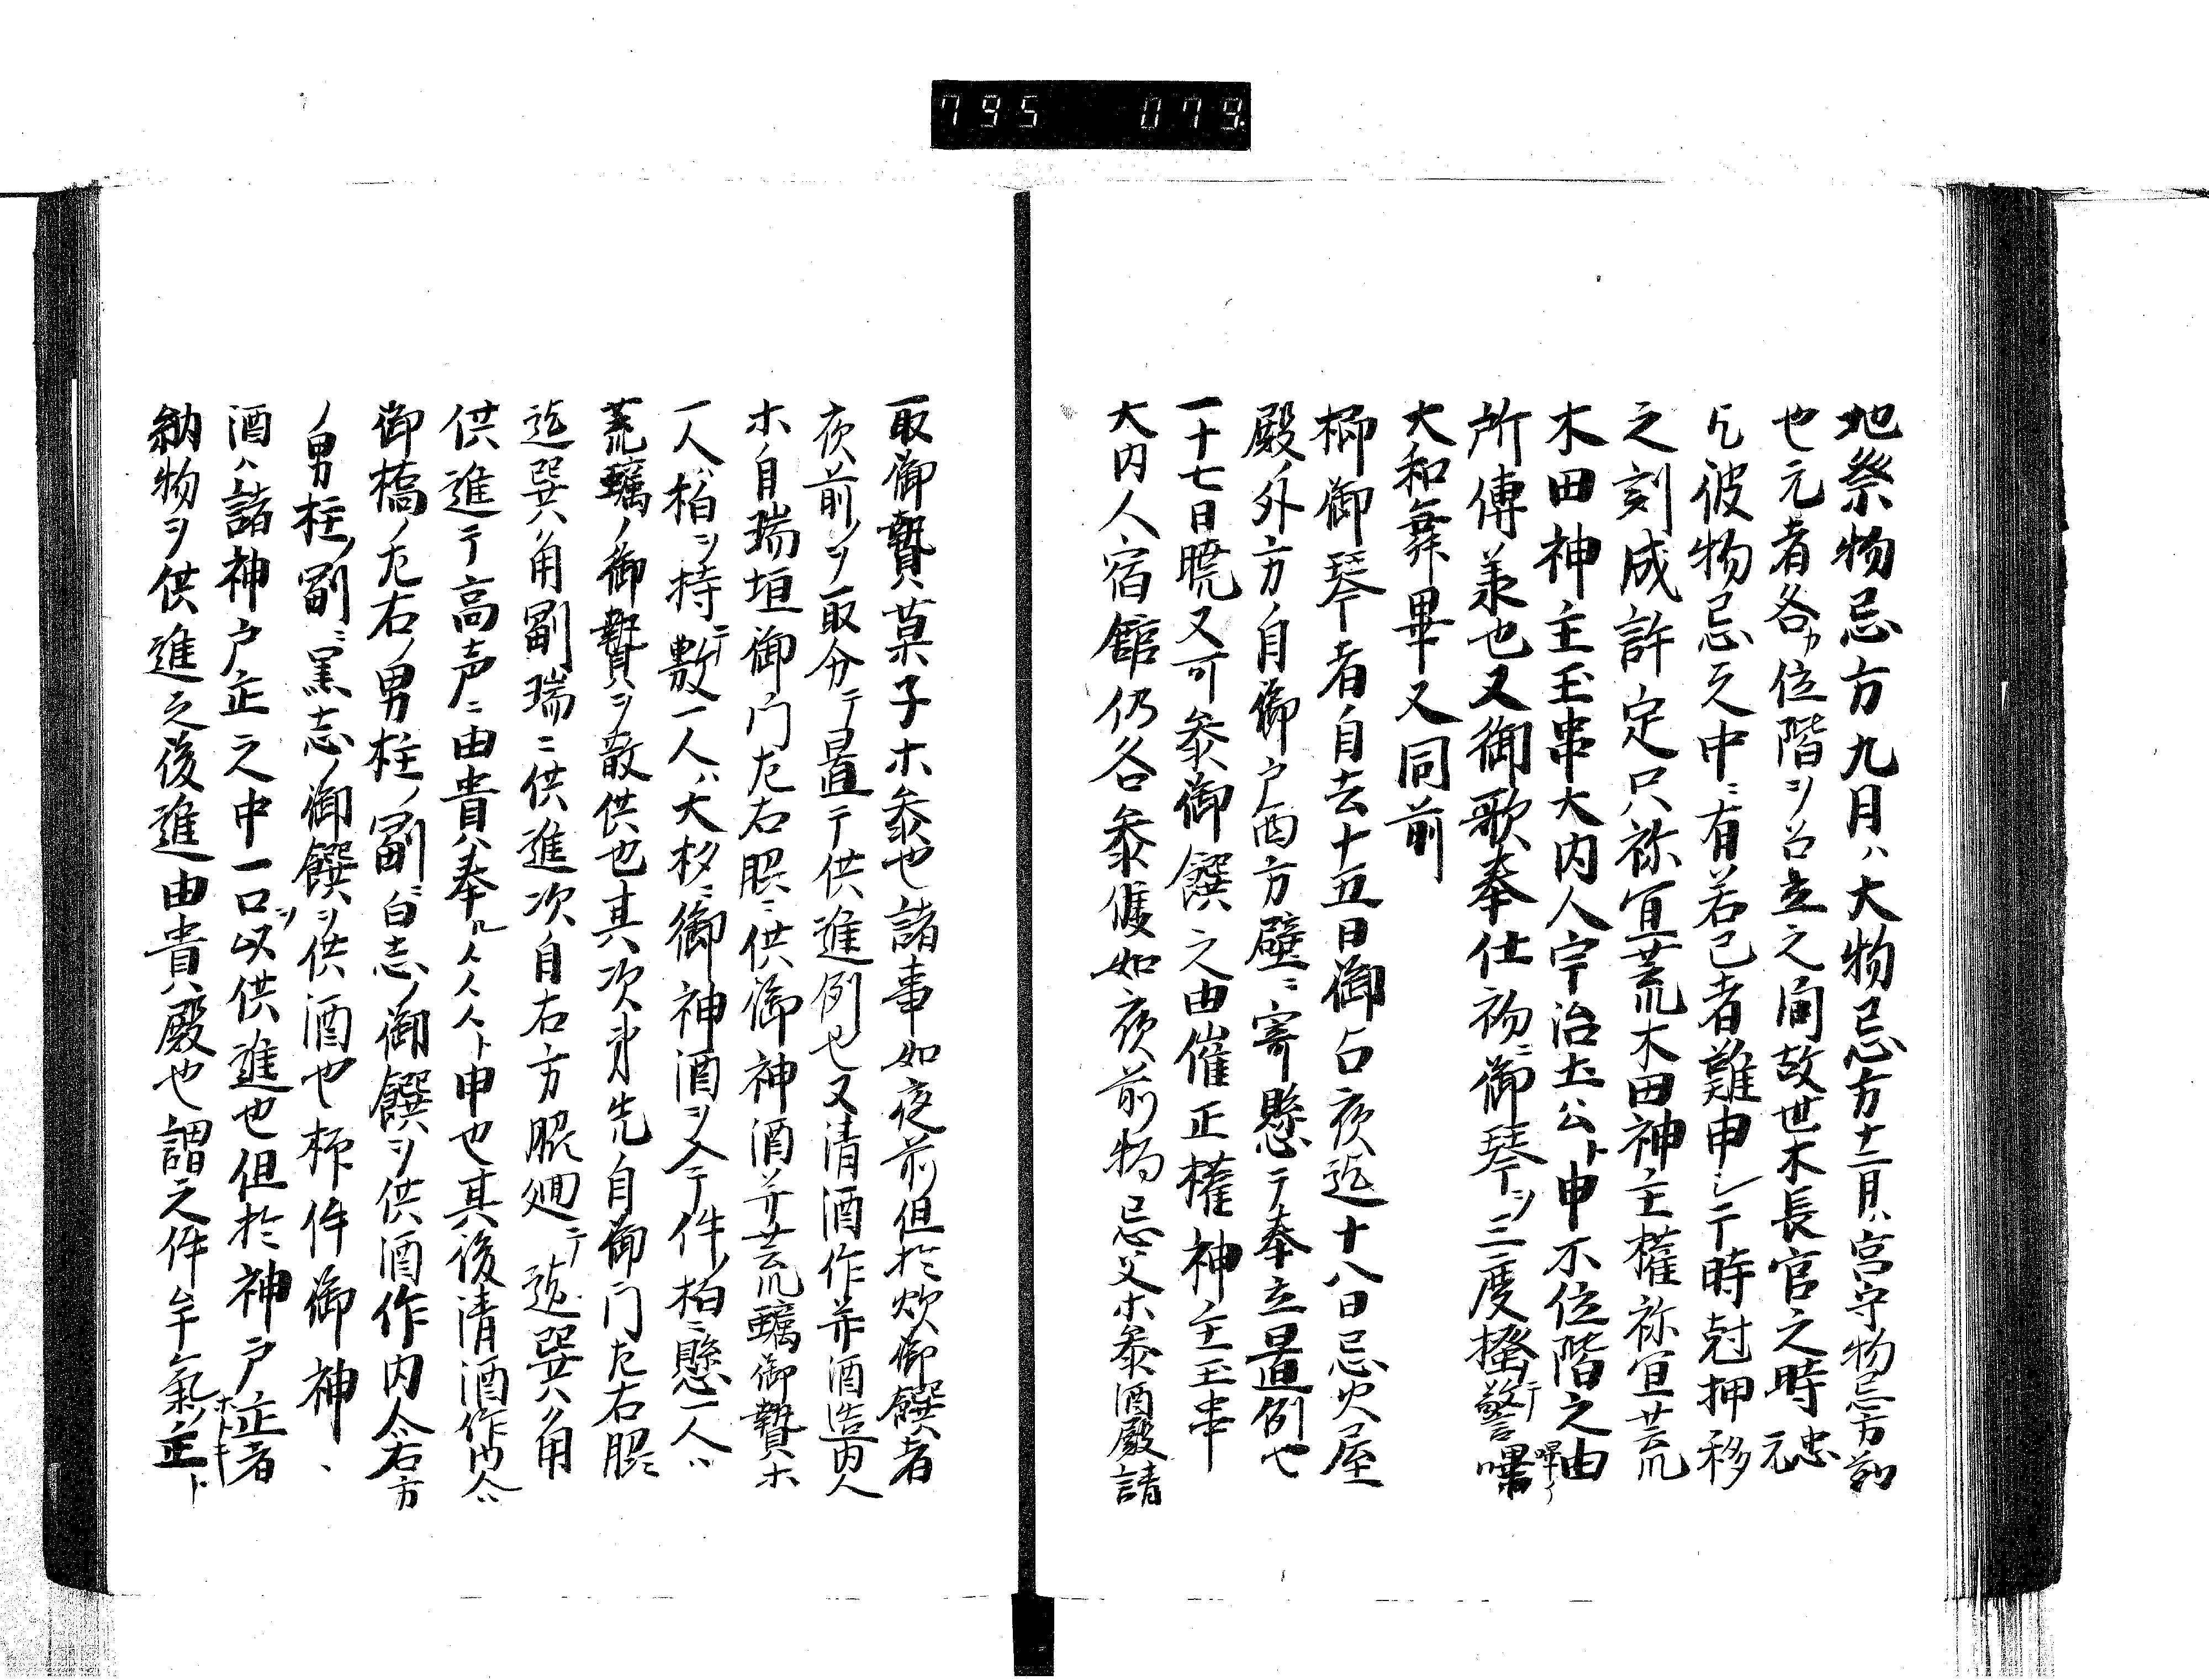 795 079
地祭物忌方九月ハ大物忌方十二月ハ宮守物忌方列
也元者各カ位階ヲ召立之間故世木長官之時元忠
ト彼物忌之中ニ有若己者難申シテ時尅押移
之刻成許定只祢宜荒木田神主権祢宜荒
木田神主玉串大内人宇治土公ト申不位階之由
所傳美也又御歌奉仕初ニ御琴ヲ三度搔テ警嗶
大和舞畢又同前
抑御琴者自去十五日御占夜迄十八日忌火屋
殿外方自御戸西方壁ニ寄懸テ奉立置例也
一十七日暁又可参御饌之由催正権神主玉串
大内人宿舘仍各参儀如夜前物忌父ホ参酒殿請
取御贄菓子ホ参也諸事如夜前但於炊御饌者
夜前ノヲ取分テ置テ供進例也又清酒作并酒造内人
ホ自瑞垣御门左右脇ニ供御神酒并荒蠣御贄ホ
一人ハ柏ヲ持テ敷一人ハ大杉ニ御神酒ヲ入テ件ノ柏ニ懸一人ハ
荒蠣ノ御贄ヲ散供也其次才先自御门左右脇ニ
迄巽ノ角副瑞ニ供進次自右方脇廻テ迄巽ノ角
供進テ高声ニ由貴ハ奉ル人人人ト申也其後清酒作内人ハ
御橋ノ左右ノ男柱ノ副ニ白志ノ御饌ヲ供酒作内人ハ右方
ノ男柱ノ副ニ黒志ノ御饌ヲ供酒也抑件御神ヽ
酒ハ諸神戸正之中一口ヲ以供進也但於神戸正者
納物ヲ供進之後進由貴殿也謂之件缶氣正ト